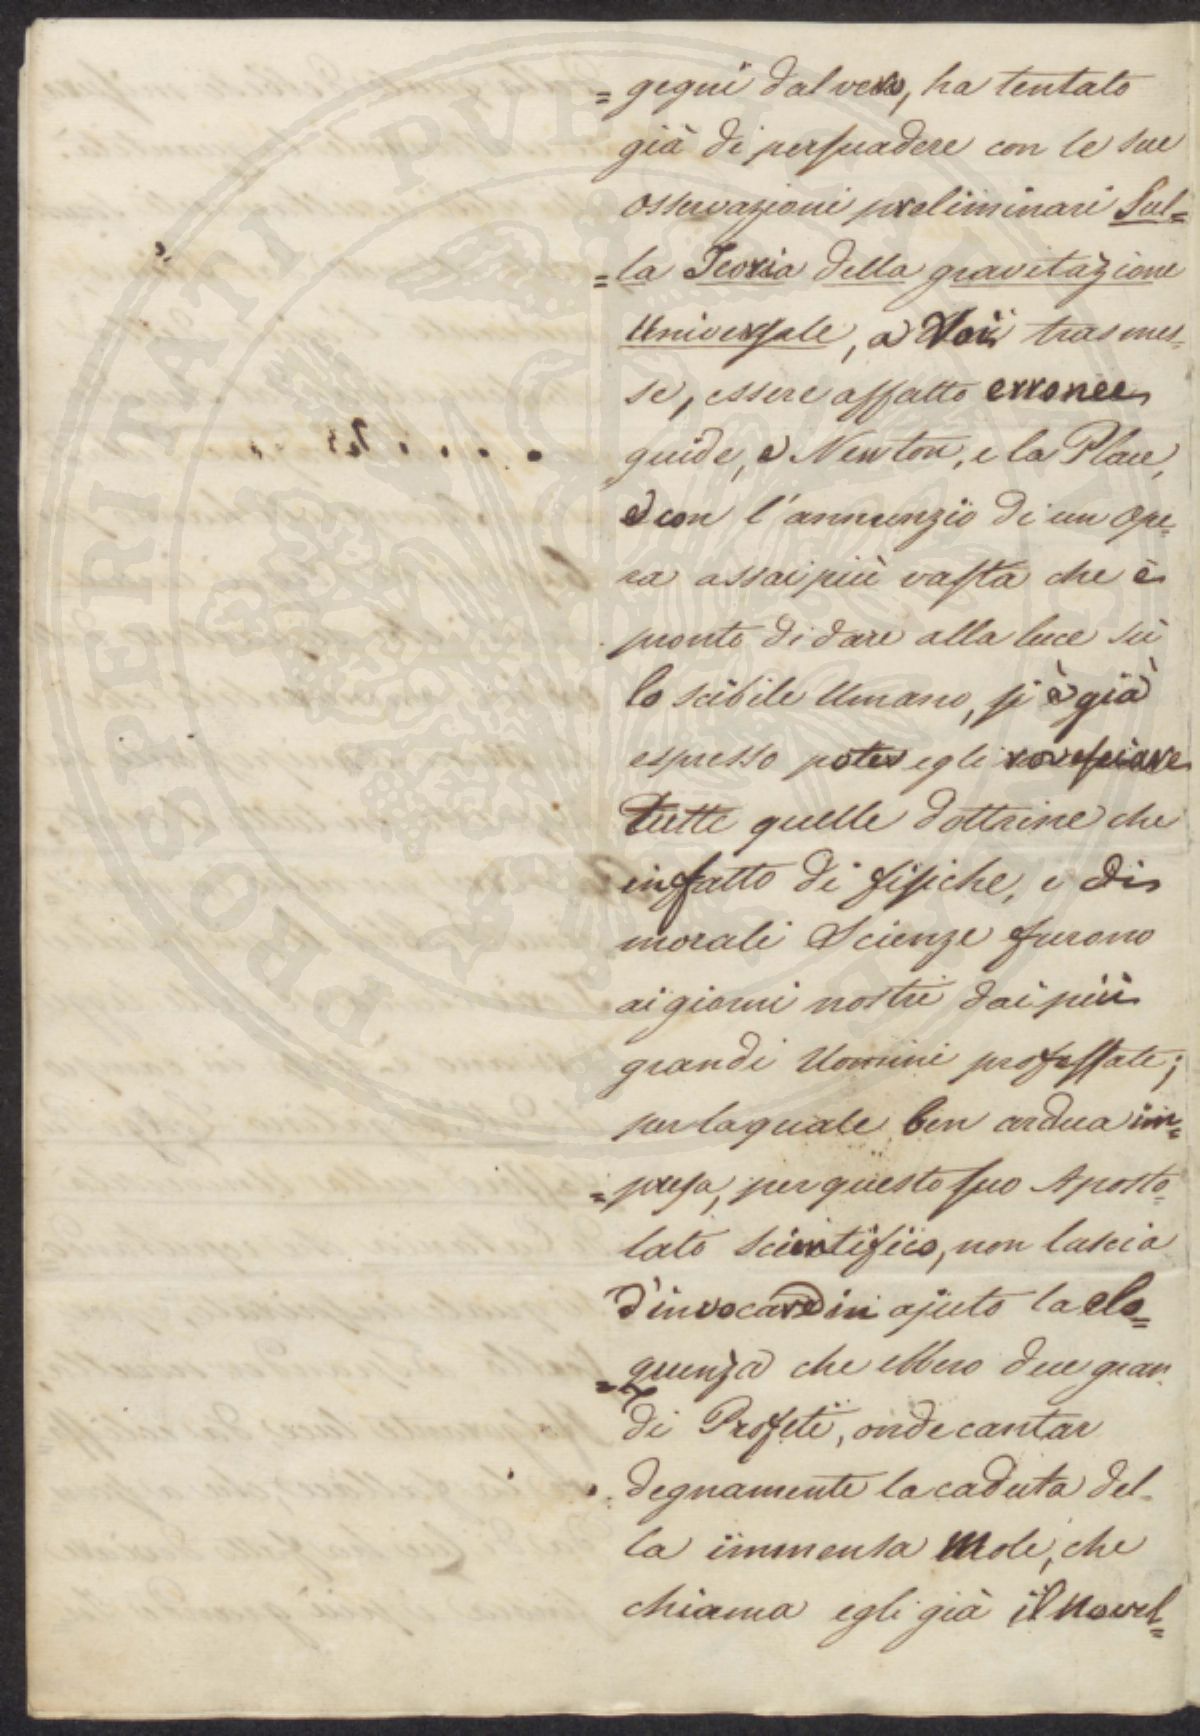 = gegni dal vero, ha tentato
già di persuadere con le sue
osservazioni preliminari Sul=
=la Teoria della gravitazione
Universale, a Voi trasmes-
se, essere affatto erronee
guide, e Newton, e la Place,
e con l'annunzio di un ope-
ra assai più vasta che è
pronto di dare alla luce sù
lo scibile Umano, si è già
espresso poter egli rovesciare
tutte quelle dottrine che
in fatto di fisiche, e di
morali Scienze furono
ai giorni nostri dai più
grandi Uomini professate;
per la quale ben ardua im=
=presa, per questo suo Aposto-
lato scientifico, non lascia
d'invocare in ajuto la elo=
=quenza che ebbero due gran
di Profeti, onde cantar
degnamente la caduta del-
la immensa mole, che
chiama egli già il Novel=
PROSPERITATI PVBLICAE